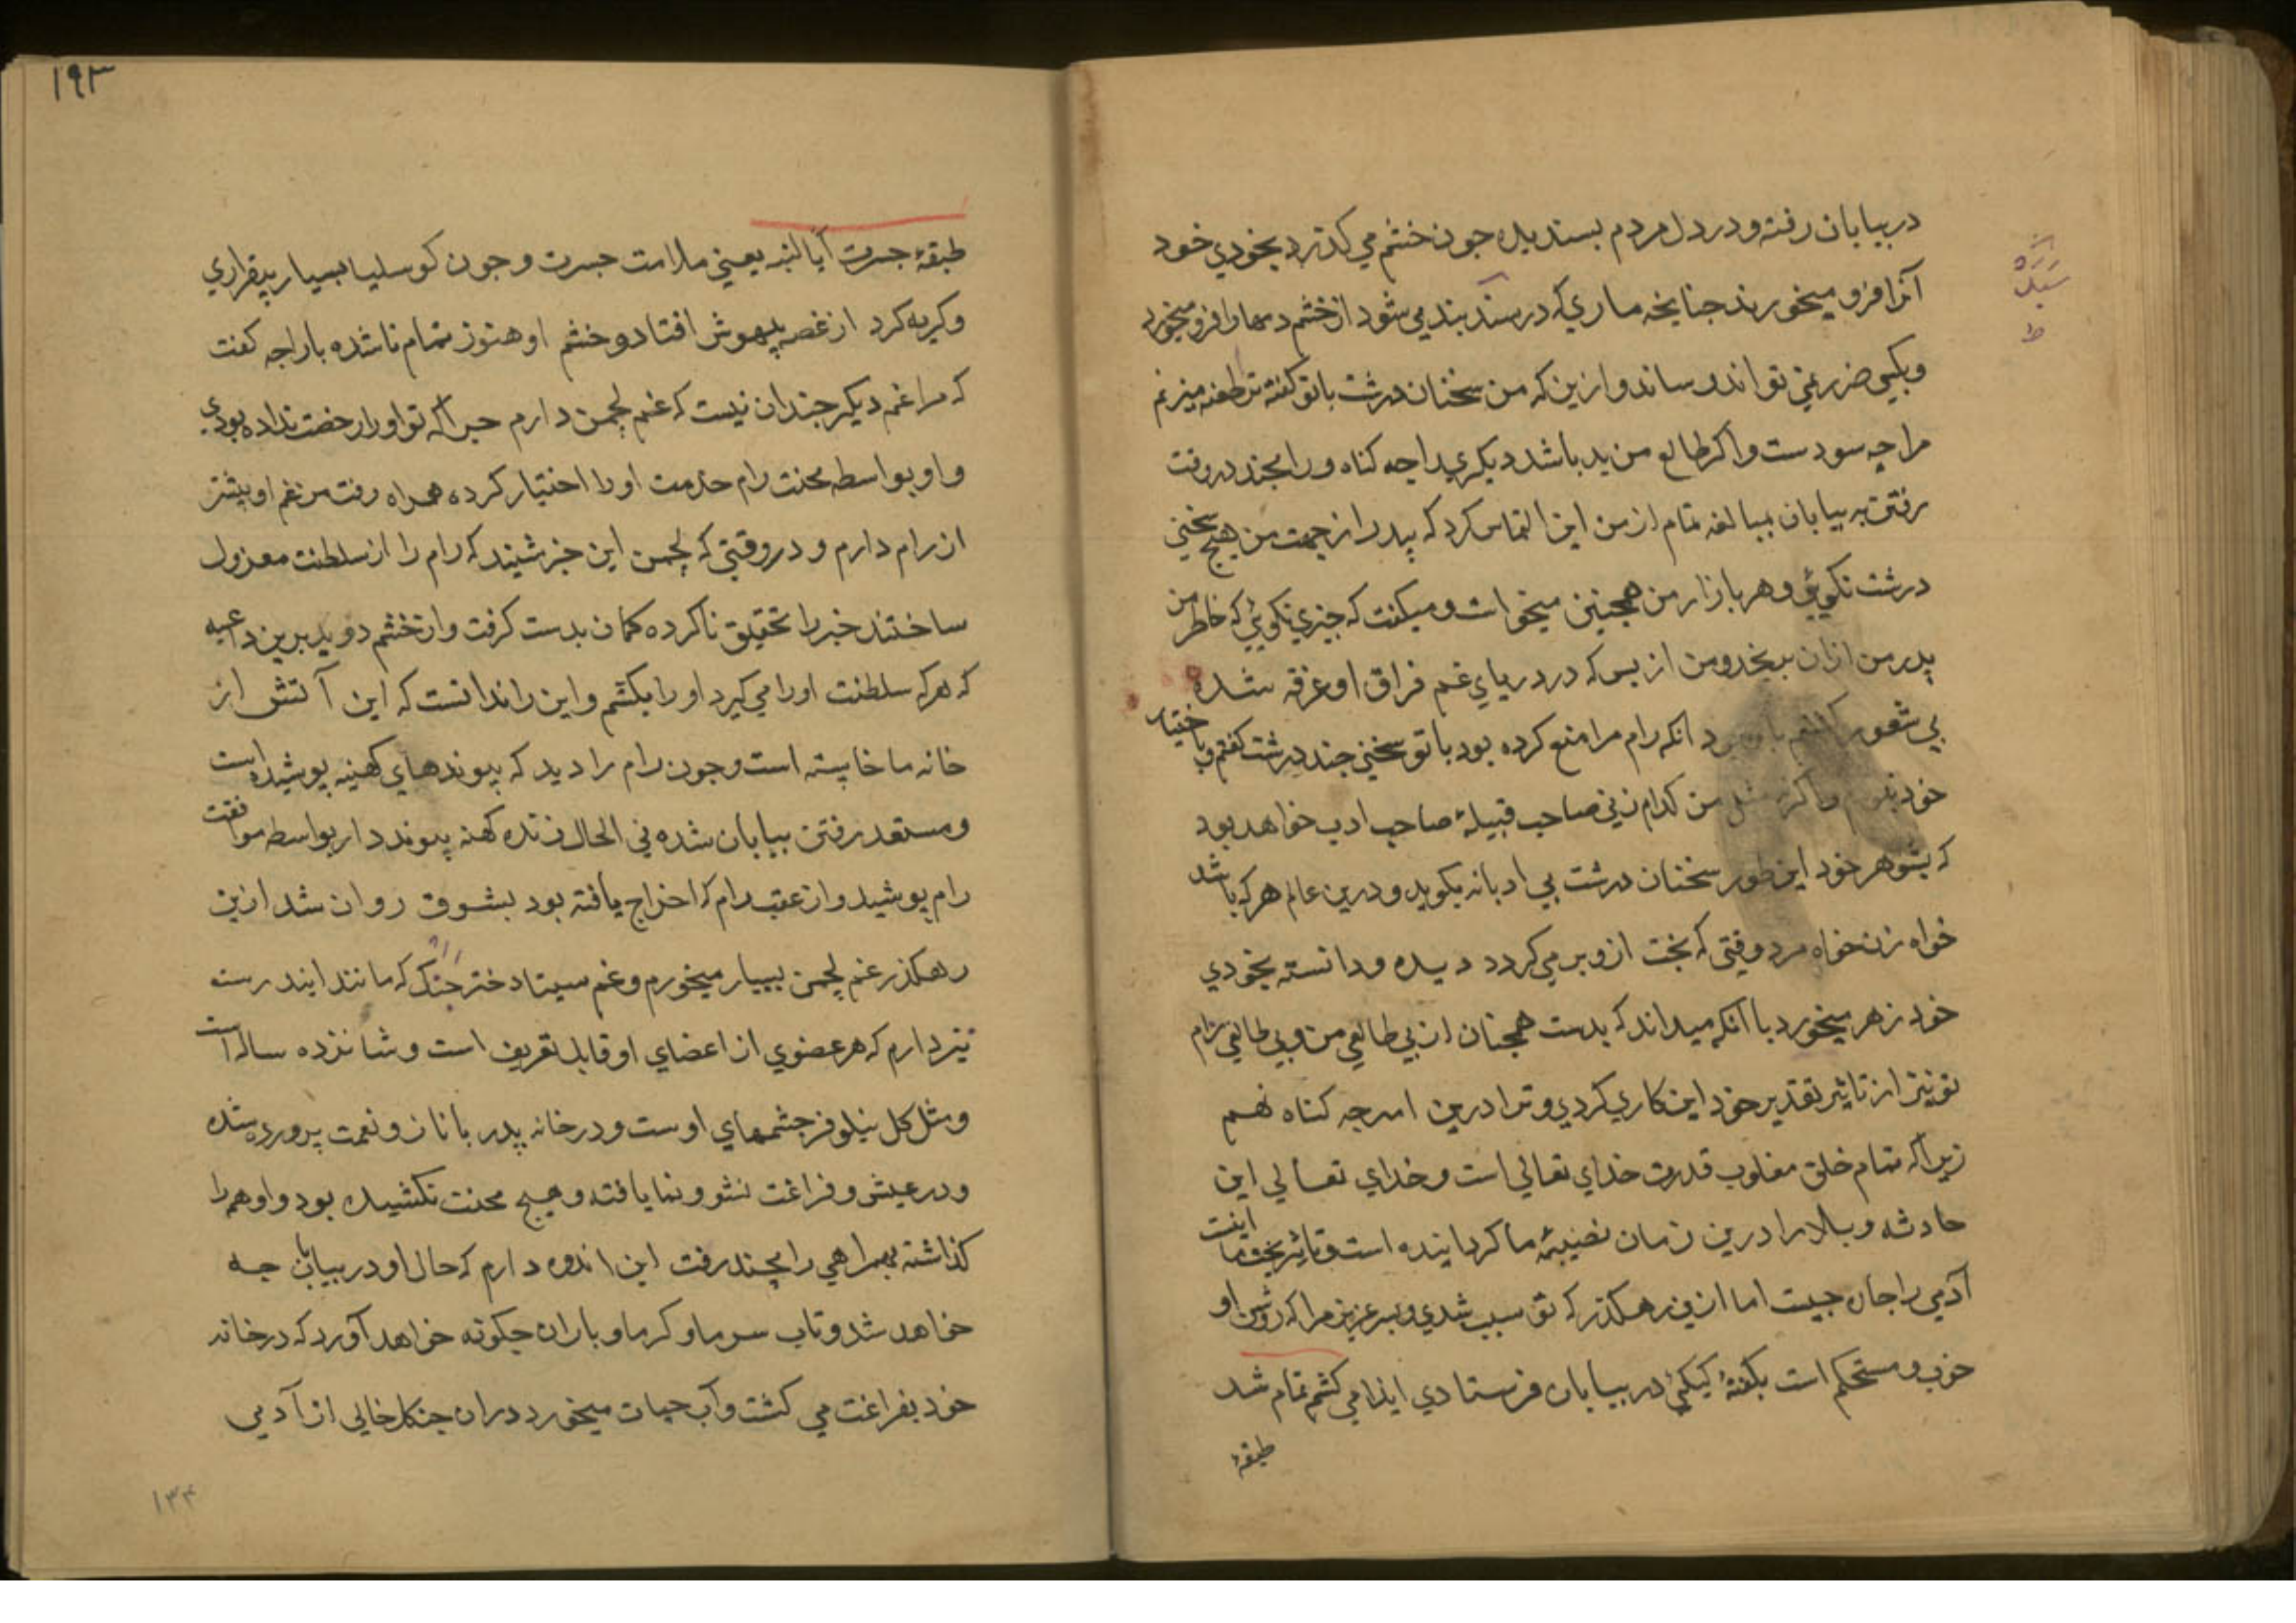 در بیابان رفته و در دل مردم بسندیده جون خشم می کذرد بخودی خود
آنرا فرو میخورند جنانجه ماری که در سند بند می شود از خشم دمها را فرو میخورد
و بکسی ضرر نمی تواند رساند و ازین که من سخنان درشت با تو کفته ترا طعنه میزنم
مرا چه سودست و اکر طالع من بد باشد دیکری را چه کناه و رامچند در وقت
رفتن به بیابان بمبالغه تمام از من این التماس کرد که پدر را از جهت من هیج سخنی
درشت نکویی و هر بار از من همچنین میخواست و میکفت که چیزی نکویی که خاطر من
پدر من ازان برنجد و من از بس که در دریای غم فراق او غرقه شده
بی شعور انکه رام مرا منع کرده بود با تو سخنی جند درشت کفتم و باختیار
خود مثل من کدام زنی صاحب قبیلهٔ صاحب ادب خواهد بود
که بشوهر خود این طور سخنان درشت بی ادبانه بکوید و درین عالم هر که باشد
خواه زن خواه مرد وقتی که بخت ازو بر می کردد دیده و دانسته بخودی
خود زهر میخورد با آنکه میداند که بدست همچنان از بی طالعی من و بی طالعی رام
تو نیز از تاثیر تقدیر خود این کاری کردی و ترا درین امر جه کناه نهم
زیرا که تمام خلق مغلوب قدرت خدای تعالی است و خدای تعالی این
حادثه و بلا را درین زمان نصیبهٔ ما کردانیده است و تاثیر بخت ما اینست
آدمی را جاره جیست اما ازین رهکذر که تو سبب شدی و پسر عزیز مرا که روش او
خوب و مستحکم است بکفتهٔ کیکئی در بیابان فرستادی ایذا می کشم تمام شد
طبقهٔ
۱۹۳
طبقهٔ جسرت آیالنبه یعنی ملامت جسرت و جون کوسلیا بسیار بیقراری
و کریه کرد از غصه بیهوش افتاد و خشم او هنوز تمام ناشده با راجه کفت
که مرا غم دیکر جندان نیست که غم لچمن دارم جراکه تو او را رخصت نداده بودی
و او بواسطه محنت رام خدمت او را اختیار کرده همراه رفت من غم او بیشتر
از رام دارم و در وقتی که لچمن این خبر شنید که رام را از سلطنت معزول
ساختند خبر را تحقیق ناکرده کمان بدست کرفت و از خشم دوید برین داعیه
که هر که سلطنت او را می کیرد او را بکشم و این را ندانست که این آتش از
خانه ما خاسته است و جون رام را دید که پیوندهای کهنه پوشیده است
و مستعد رفتن بیابان شده فی الحال ژنده کهنه پیونددار بواسطه موافقت
رام پوشید و از عقب رام که اخراج یافته بود بشوق روان شد ازین
رهکذر غم لچمن بسیار میخورم و غم سیتا دختر جنک که مانند ایندرست
نیز دارم که هر عضوی از اعضای او قابل تعریف است و شانزده ساله است
و مثل کل نیلوفر جشمهای اوست و در خانه پدر با ناز و نعمت پرورده شده
و در عیش و فراغت نشو و نما یافته و هیچ محنت نکشیده بود و او همه را
کذاشته بهمراهی رامچند رفت این اندوه دارم که حال او در بیابان جه
خواهد شد و تاب سرما و کرما و باران جکونه خواهد آورد که در خانه
خود بفراغت می کشت و آب حیات میخورد دران جنکل خالی از آدمی
۱۳۴